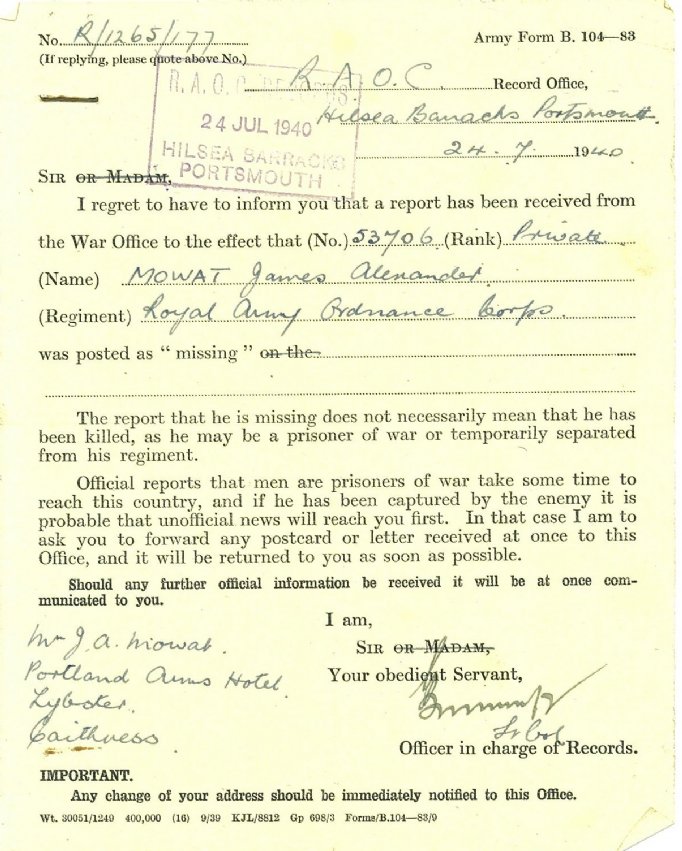 No. R/1265/177
Army Form B. 104—83
(If replying, please quote above No.)
R. A. O. C. Record Office,
R.A.O.C. RECORDS
24 JUL 1940
HILSEA BARRACKS
PORTSMOUTH
Hilsea Barracks Portsmouth.
24. 7. 1940
SIR OR MADAM,
I regret to have to inform you that a report has been received from
the War Office to the effect that (No.) 53706 (Rank) Private
(Name) MOWAT James Alexander.
(Regiment) Royal Army Ordnance Corps.
was posted as “ missing ” on the
The report that he is missing does not necessarily mean that he has
been killed, as he may be a prisoner of war or temporarily separated
from his regiment.
Official reports that men are prisoners of war take some time to
reach this country, and if he has been captured by the enemy it is
probable that unofficial news will reach you first. In that case I am to
ask you to forward any postcard or letter received at once to this
Office, and it will be returned to you as soon as possible.
Should any further official information be received it will be at once com-
municated to you.
I am,
SIR OR MADAM,
Your obedient Servant,
Lt Col
Officer in charge of Records.
Mr J. A. Mowat.
Portland Arms Hotel.
Lybster.
Caithness.
IMPORTANT.
Any change of your address should be immediately notified to this Office.
Wt. 30051/1249 400,000 (16) 9/39 KJL/8812 Gp 698/3 Forms/B.104—83/9